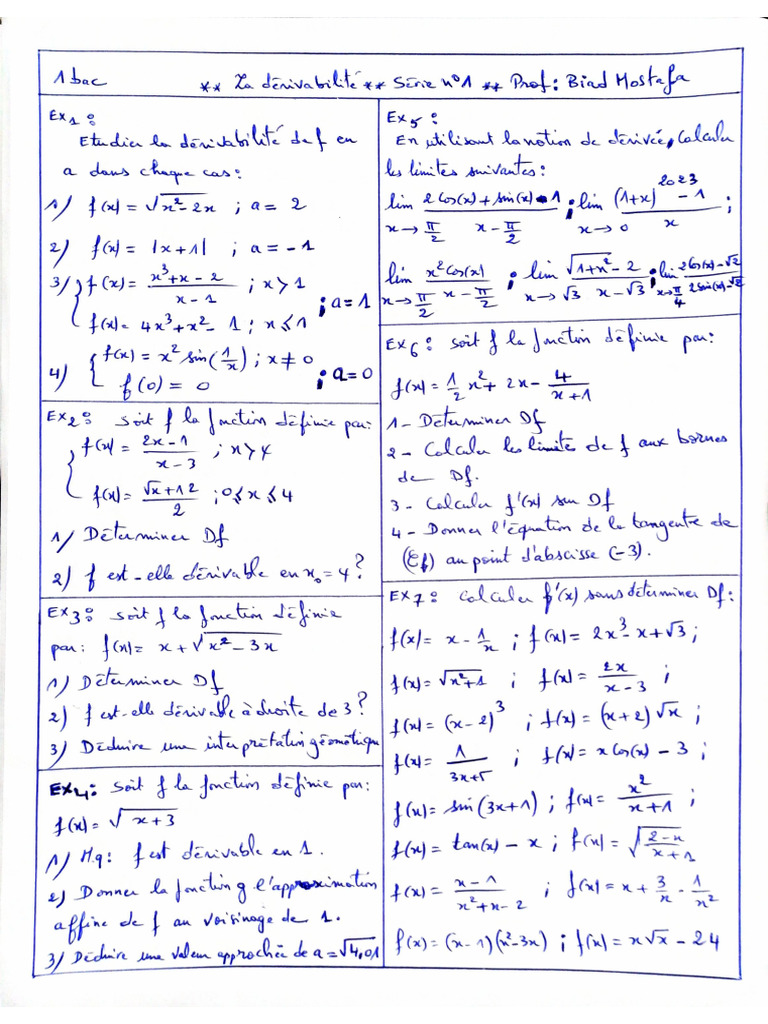 1 bac ** La dérivabilité ** Série n°1 ** Prof: Biad Mostafa
Ex1:
Etudier la dérivabilité de f en
a dans chaque cas:
1) f(x) = √(x²-2x) ; a = 2
2) f(x) = |x+1| ; a = -1
3) { f(x) = (x³+x-2)/(x-1) ; x > 1
f(x) = 4x³+x²-1 ; x ≤ 1 ; a = 1
4) { f(x) = x² sin(1/x) ; x ≠ 0
f(0) = 0 ; a = 0
Ex2: soit f la fonction définie par:
{ f(x) = (2x-1)/(x-3) ; x > 4
f(x) = (√x+12)/2 ; 0 ≤ x ≤ 4
1) Déterminer Df
2) f est-elle dérivable en x₀ = 4 ?
Ex3: soit f la fonction définie
par: f(x) = x + √(x²-3x)
1) Déterminer Df
2) f est-elle dérivable à droite de 3 ?
3) Déduire une interprétation géométique
Ex4: soit f la fonction définie par:
f(x) = √(x+3)
1) Mq: f est dérivable en 1.
2) Donner la fonction g l'approximation
affine de f au voisinage de 1.
3) Déduire une valeur approchée de a = √4,01
Ex5:
En utilisant la notion de dérivée, Calculer
les limites suivantes:
lim x→π/2 (2cos(x)+sin(x)-1)/(x-π/2) ; lim x→0 ((1+x)^2023 -1)/x ;
lim x→π/2 (x²cos(x))/(x-π/2) ; lim x→√3 (√(1+x²)-2)/(x-√3) ; lim x→π/4 (2cos(x)-√2)/(2sin(x)-√2)
Ex6: soit f la fonction définie par:
f(x) = 1/2 x² + 2x - 4/(x+1)
1- Déterminer Df
2- Calculer les limites de f aux bornes
de Df.
3- Calculer f'(x) sur Df
4- Donner l'équation de la tangente de
(Cf) au point d'abscisse (-3).
Ex7: Calculer f'(x) sans déterminer Df:
f(x) = x - 1/x ; f(x) = 2x³-x+√3 ;
f(x) = √(x²+1) ; f(x) = 2x/(x-3) ;
f(x) = (x-2)³ ; f(x) = (x+2)√x ;
f(x) = 1/(3x+5) ; f(x) = x cos(x) - 3 ;
f(x) = sin(3x+1) ; f(x) = x²/(x+1) ;
f(x) = tan(x) - x ; f(x) = √((2-x)/(x+1))
f(x) = (x-1)/(x²+x-2) ; f(x) = x + 3/x - 1/x²
f(x) = (x-1)(x²-3x) ; f(x) = x√x - 24